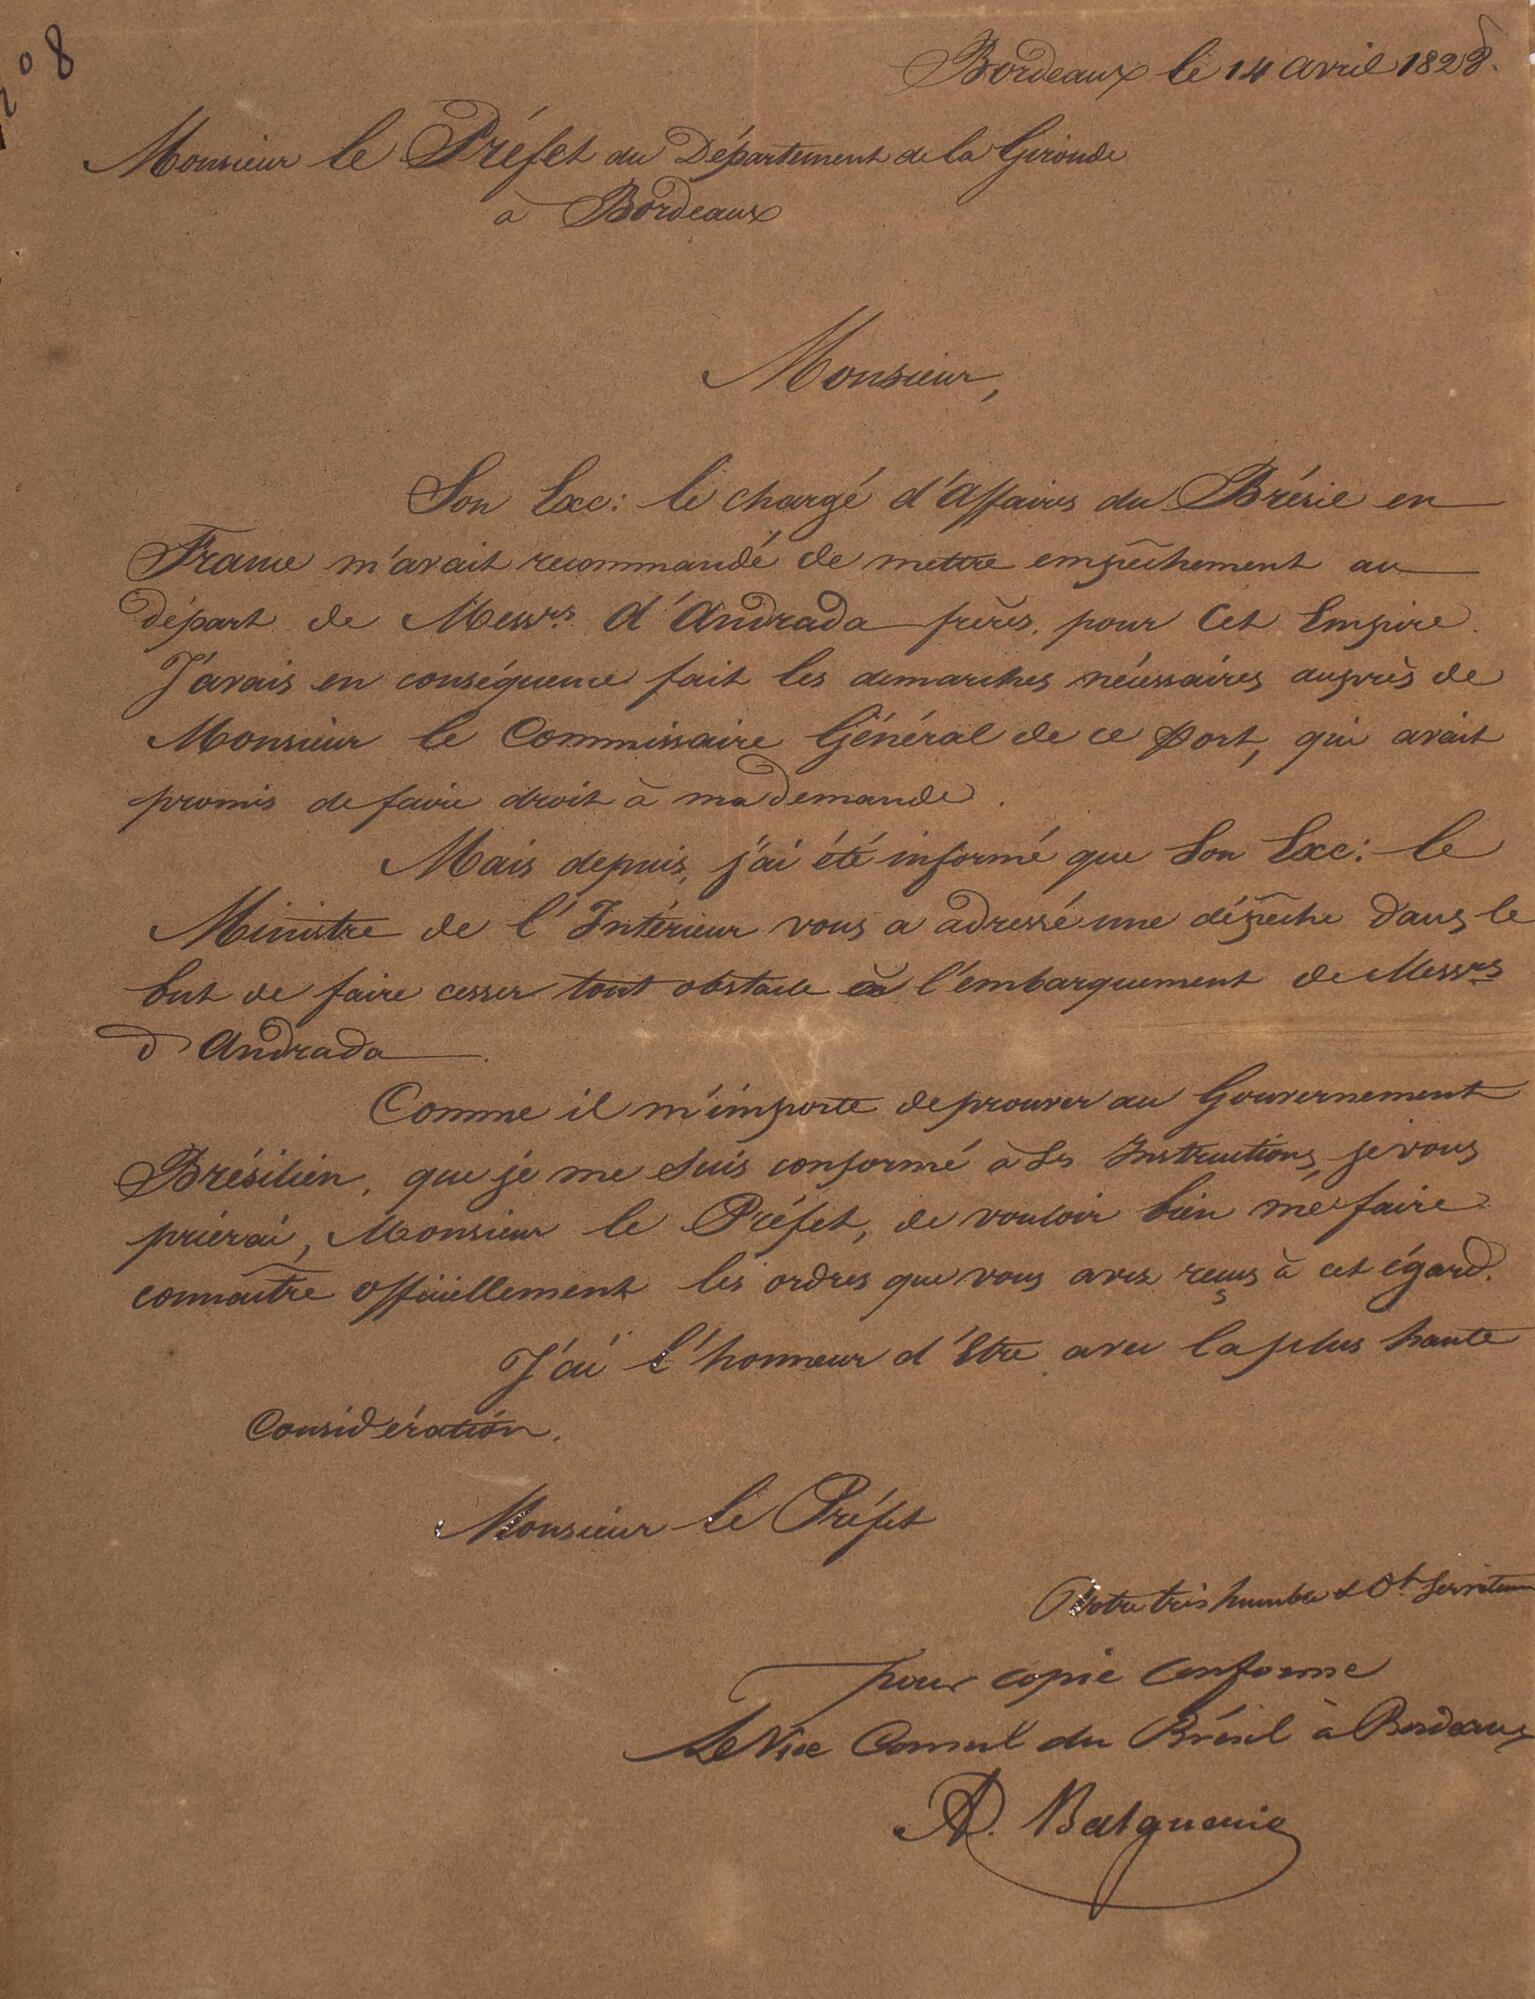 208
Bordeaux le 14 avril 1828.
Monsieur le Préfet du Département de la Gironde
à Bordeaux
Monsieur,
Son Exc: le chargé d'Affaires du Brésil en
France m'avait recommandé de mettre empêchement au
départ de Messrs d'Andrada frères, pour Cet Empire.
J'avais en conséquence fait les demarches nécessaires auprès de
Monsieur le Commissaire Général de ce port, qui avait
promis de faire droit à ma demande.
Mais depuis, j'ai été informé que Son Exc: le
Ministre de l'Intérieur vous a adressé une dépêche dans le
but de faire cesser tout obstacle à l'embarquement de Messrs
d'Andrada.
Comme il m'importe de prouver au Gouvernement
Brésilien, que je me suis conformé à Ses Instructions, je vous
priérai, Monsieur le Préfet, de vouloir bien me faire
connaître officiellement les ordres que vous avez reçus à cet égard.
J'ai l'honneur d'Etre avec la plus haute
Considération.
Monsieur le Préfet
Votre très humble & Ob. Serviteur
pour copie conforme
Le Vice Consul du Brésil à Bordeaux
A. Balguerie